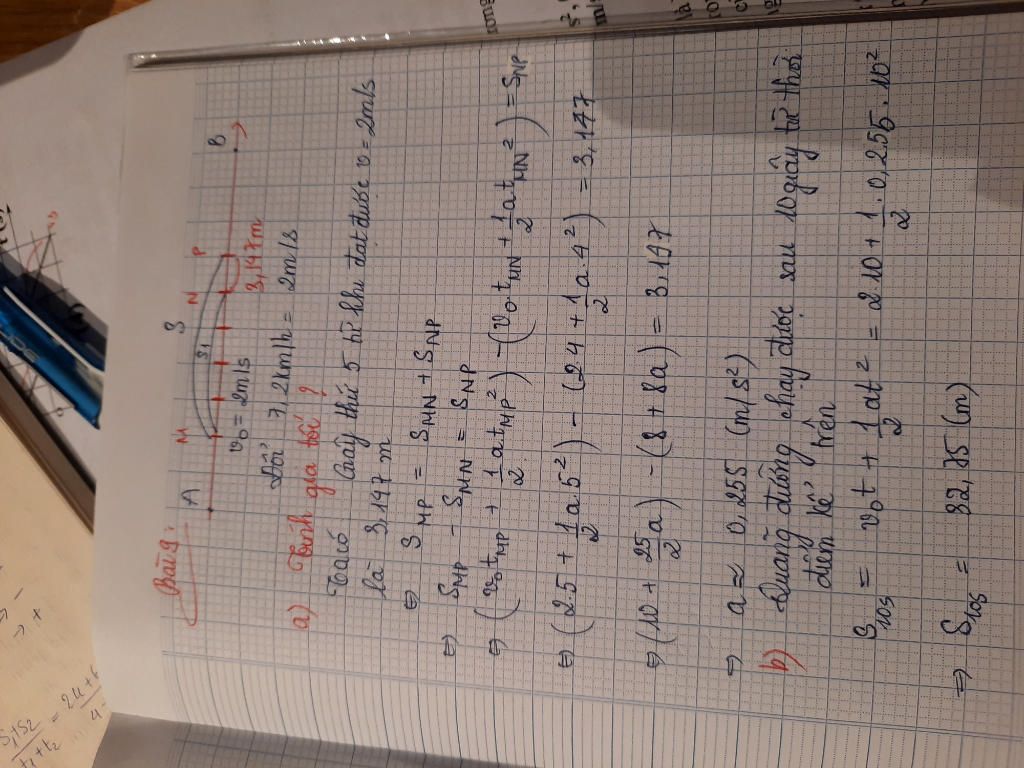 Bài 9:
A M S N P B
S1
v₀ = 2m/s 3,147m
Đổi 7,2km/h = 2m/s
a) Tính gia tốc ?
Ta có Giây thứ 5 từ khi đạt được v = 2m/s
là 3,147 m
⇔ S_MP = S_MN + S_NP
⇔ S_MP - S_MN = S_NP
⇔ (v₀t_MP + 1/2 at_MP²) - (v₀.t_MN + 1/2 at_MN²) = S_NP
⇔ (2.5 + 1/2 a.5²) - (2.4 + 1/2 a.4²) = 3,147
⇔ (10 + 25/2 a) - (8 + 8a) = 3.147
⇒ a ≈ 0,255 (m/s²)
b) Quãng đường chạy được sau 10 giây từ thời
điểm kể trên
S_10s = v₀t + 1/2 at² = 2.10 + 1/2 . 0,255 . 10²
⇒ S_10s = 32,75 (m)
S1S2
t1+t2